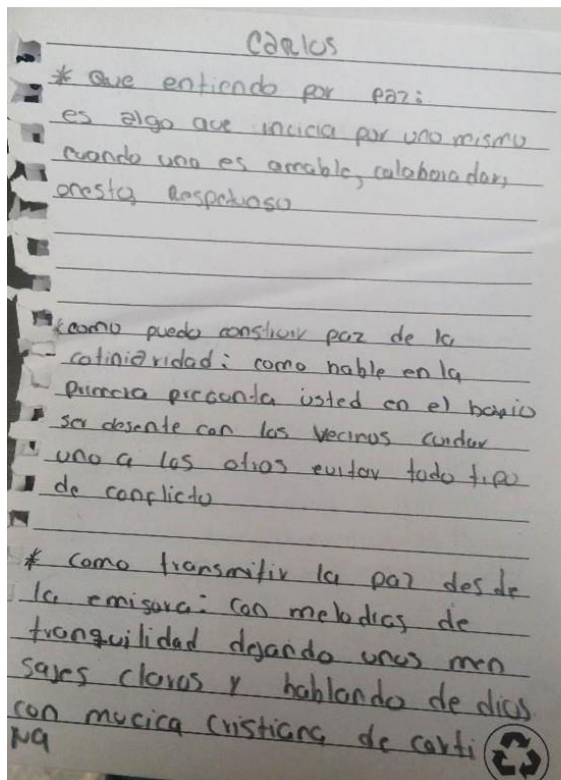 Carlos
* Que entiendo por paz:
es algo que inicia por uno mismo
cuando uno es amable, colaborador,
onesto, Respetuoso
* como puedo construir paz de la
cotinidridad: como hable en la
primera precunta usted en el barrio
ser desente con los vecinos cuidar
uno a los otros evitar todo tipo
de conflicto
* como transmitir la paz desde
la emisora: con melodias de
tranquilidad dejando unos men
sajes claros y hablando de dios
con mucica cristiana de corti
na